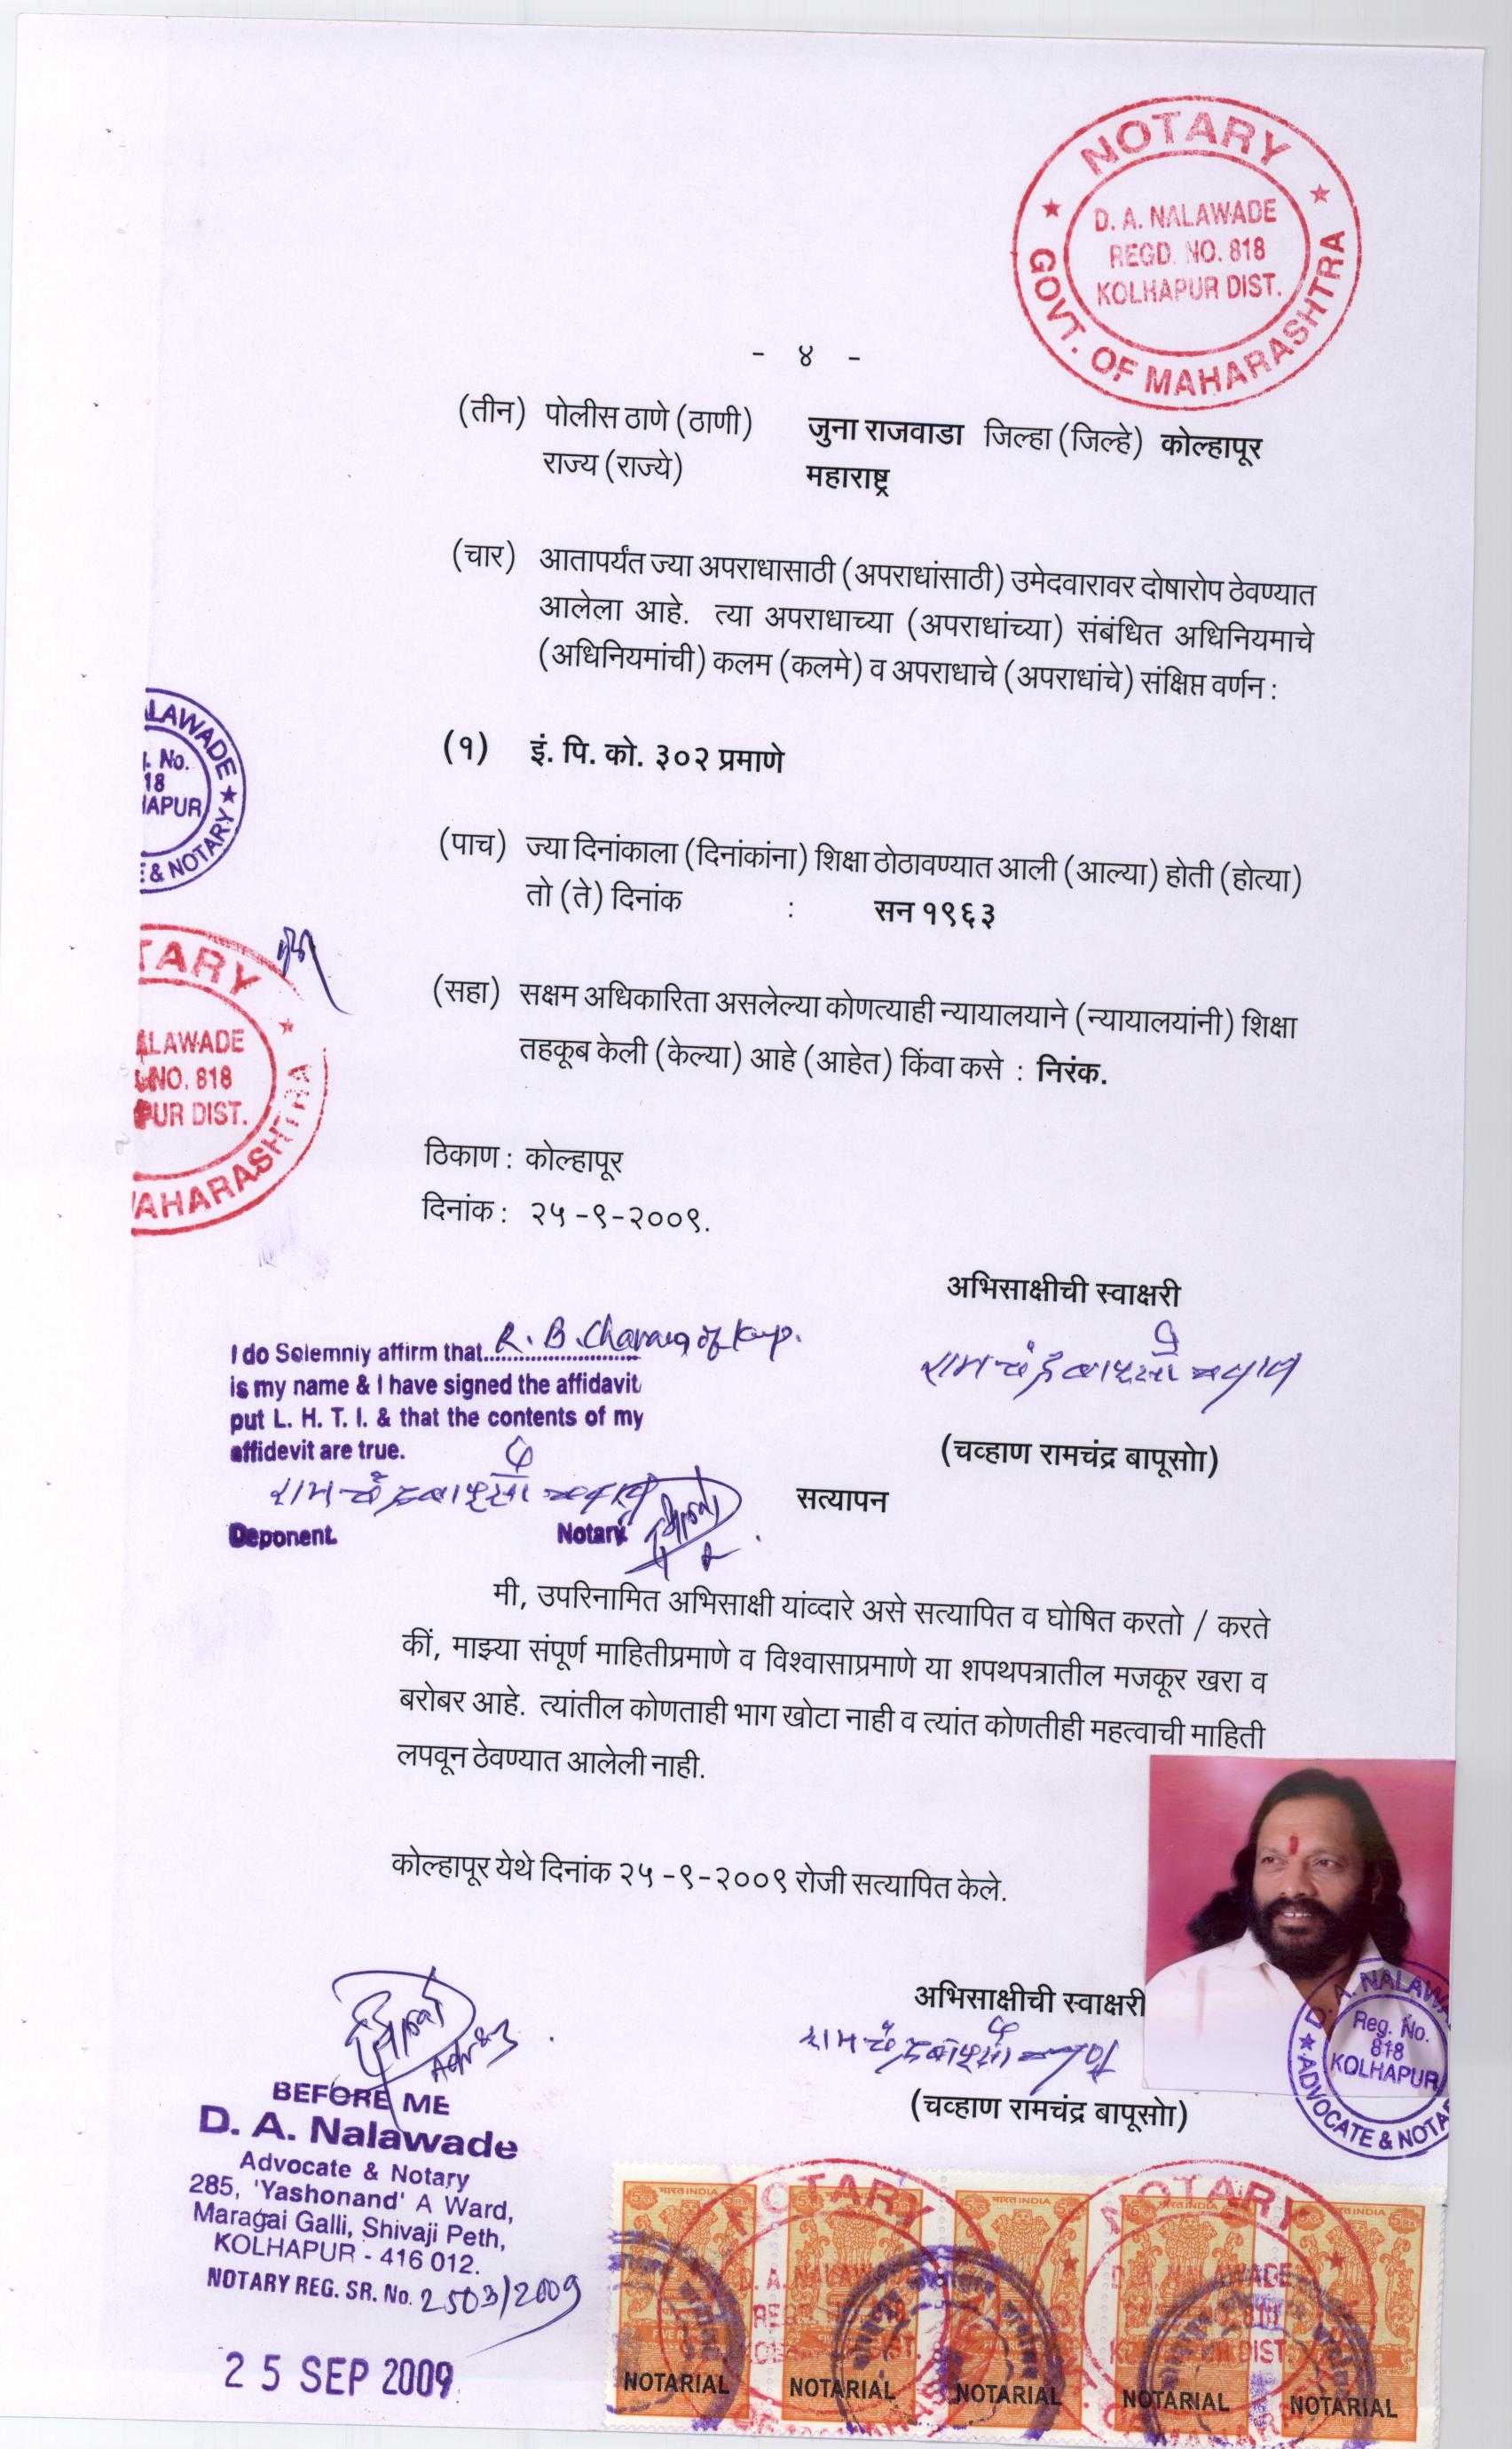 NOTARY
D. A. NALAWADE
REGD. NO. 818
KOLHAPUR DIST.
GOVT. OF MAHARASHTRA
- ४ -
(तीन) पोलीस ठाणे (ठाणी) जुना राजवाडा जिल्हा (जिल्हे) कोल्हापूर
राज्य (राज्ये) महाराष्ट्र
(चार) आतापर्यंत ज्या अपराधासाठी (अपराधांसाठी) उमेदवारावर दोषारोप ठेवण्यात
आलेला आहे. त्या अपराधाच्या (अपराधांच्या) संबंधित अधिनियमाचे
(अधिनियमांची) कलम (कलमे) व अपराधाचे (अपराधांचे) संक्षिप्त वर्णन :
(१) इं. पि. को. ३०२ प्रमाणे
ALAWADE
. No.
18
HAPUR
E & NOTARY
(पाच) ज्या दिनांकाला (दिनांकांना) शिक्षा ठोठावण्यात आली (आल्या) होती (होत्या)
तो (ते) दिनांक : सन १९६३
TARY
ALAWADE
NO. 818
PUR DIST.
MAHARASHTRA
(सहा) सक्षम अधिकारिता असलेल्या कोणत्याही न्यायालयाने (न्यायालयांनी) शिक्षा
तहकूब केली (केल्या) आहे (आहेत) किंवा कसे : निरंक.
ठिकाण : कोल्हापूर
दिनांक : २५ -९-२००९.
अभिसाक्षीची स्वाक्षरी
रामचंद्र बापूसो चव्हाण
(चव्हाण रामचंद्र बापूसोा)
I do Solemniy affirm that R. B. Chavan of Kop.
is my name & I have signed the affidavit
put L. H. T. I. & that the contents of my
affidevit are true.
रामचंद्र बापूसो चव्हाण
Deponent. Notary
सत्यापन
मी, उपरिनामित अभिसाक्षी यांव्दारे असे सत्यापित व घोषित करतो / करते
कीं, माझ्या संपूर्ण माहितीप्रमाणे व विश्वासाप्रमाणे या शपथपत्रातील मजकूर खरा व
बरोबर आहे. त्यांतील कोणताही भाग खोटा नाही व त्यांत कोणतीही महत्वाची माहिती
लपवून ठेवण्यात आलेली नाही.
कोल्हापूर येथे दिनांक २५ -९-२००९ रोजी सत्यापित केले.
अभिसाक्षीची स्वाक्षरी
रामचंद्र बापूसो चव्हाण
(चव्हाण रामचंद्र बापूसोा)
D. A. NALAWA
Reg. No.
818
KOLHAPUR
ADVOCATE & NOTA
BEFORE ME
D. A. Nalawade
Advocate & Notary
285, 'Yashonand' A Ward,
Maragai Galli, Shivaji Peth,
KOLHAPUR - 416 012.
NOTARY REG. SR. No. 2503/2009
25 SEP 2009
भारत INDIA भारत INDIA भारत INDIA भारत INDIA भारत INDIA
NOTARY NOTARY
NOTARIAL NOTARIAL NOTARIAL NOTARIAL NOTARIAL